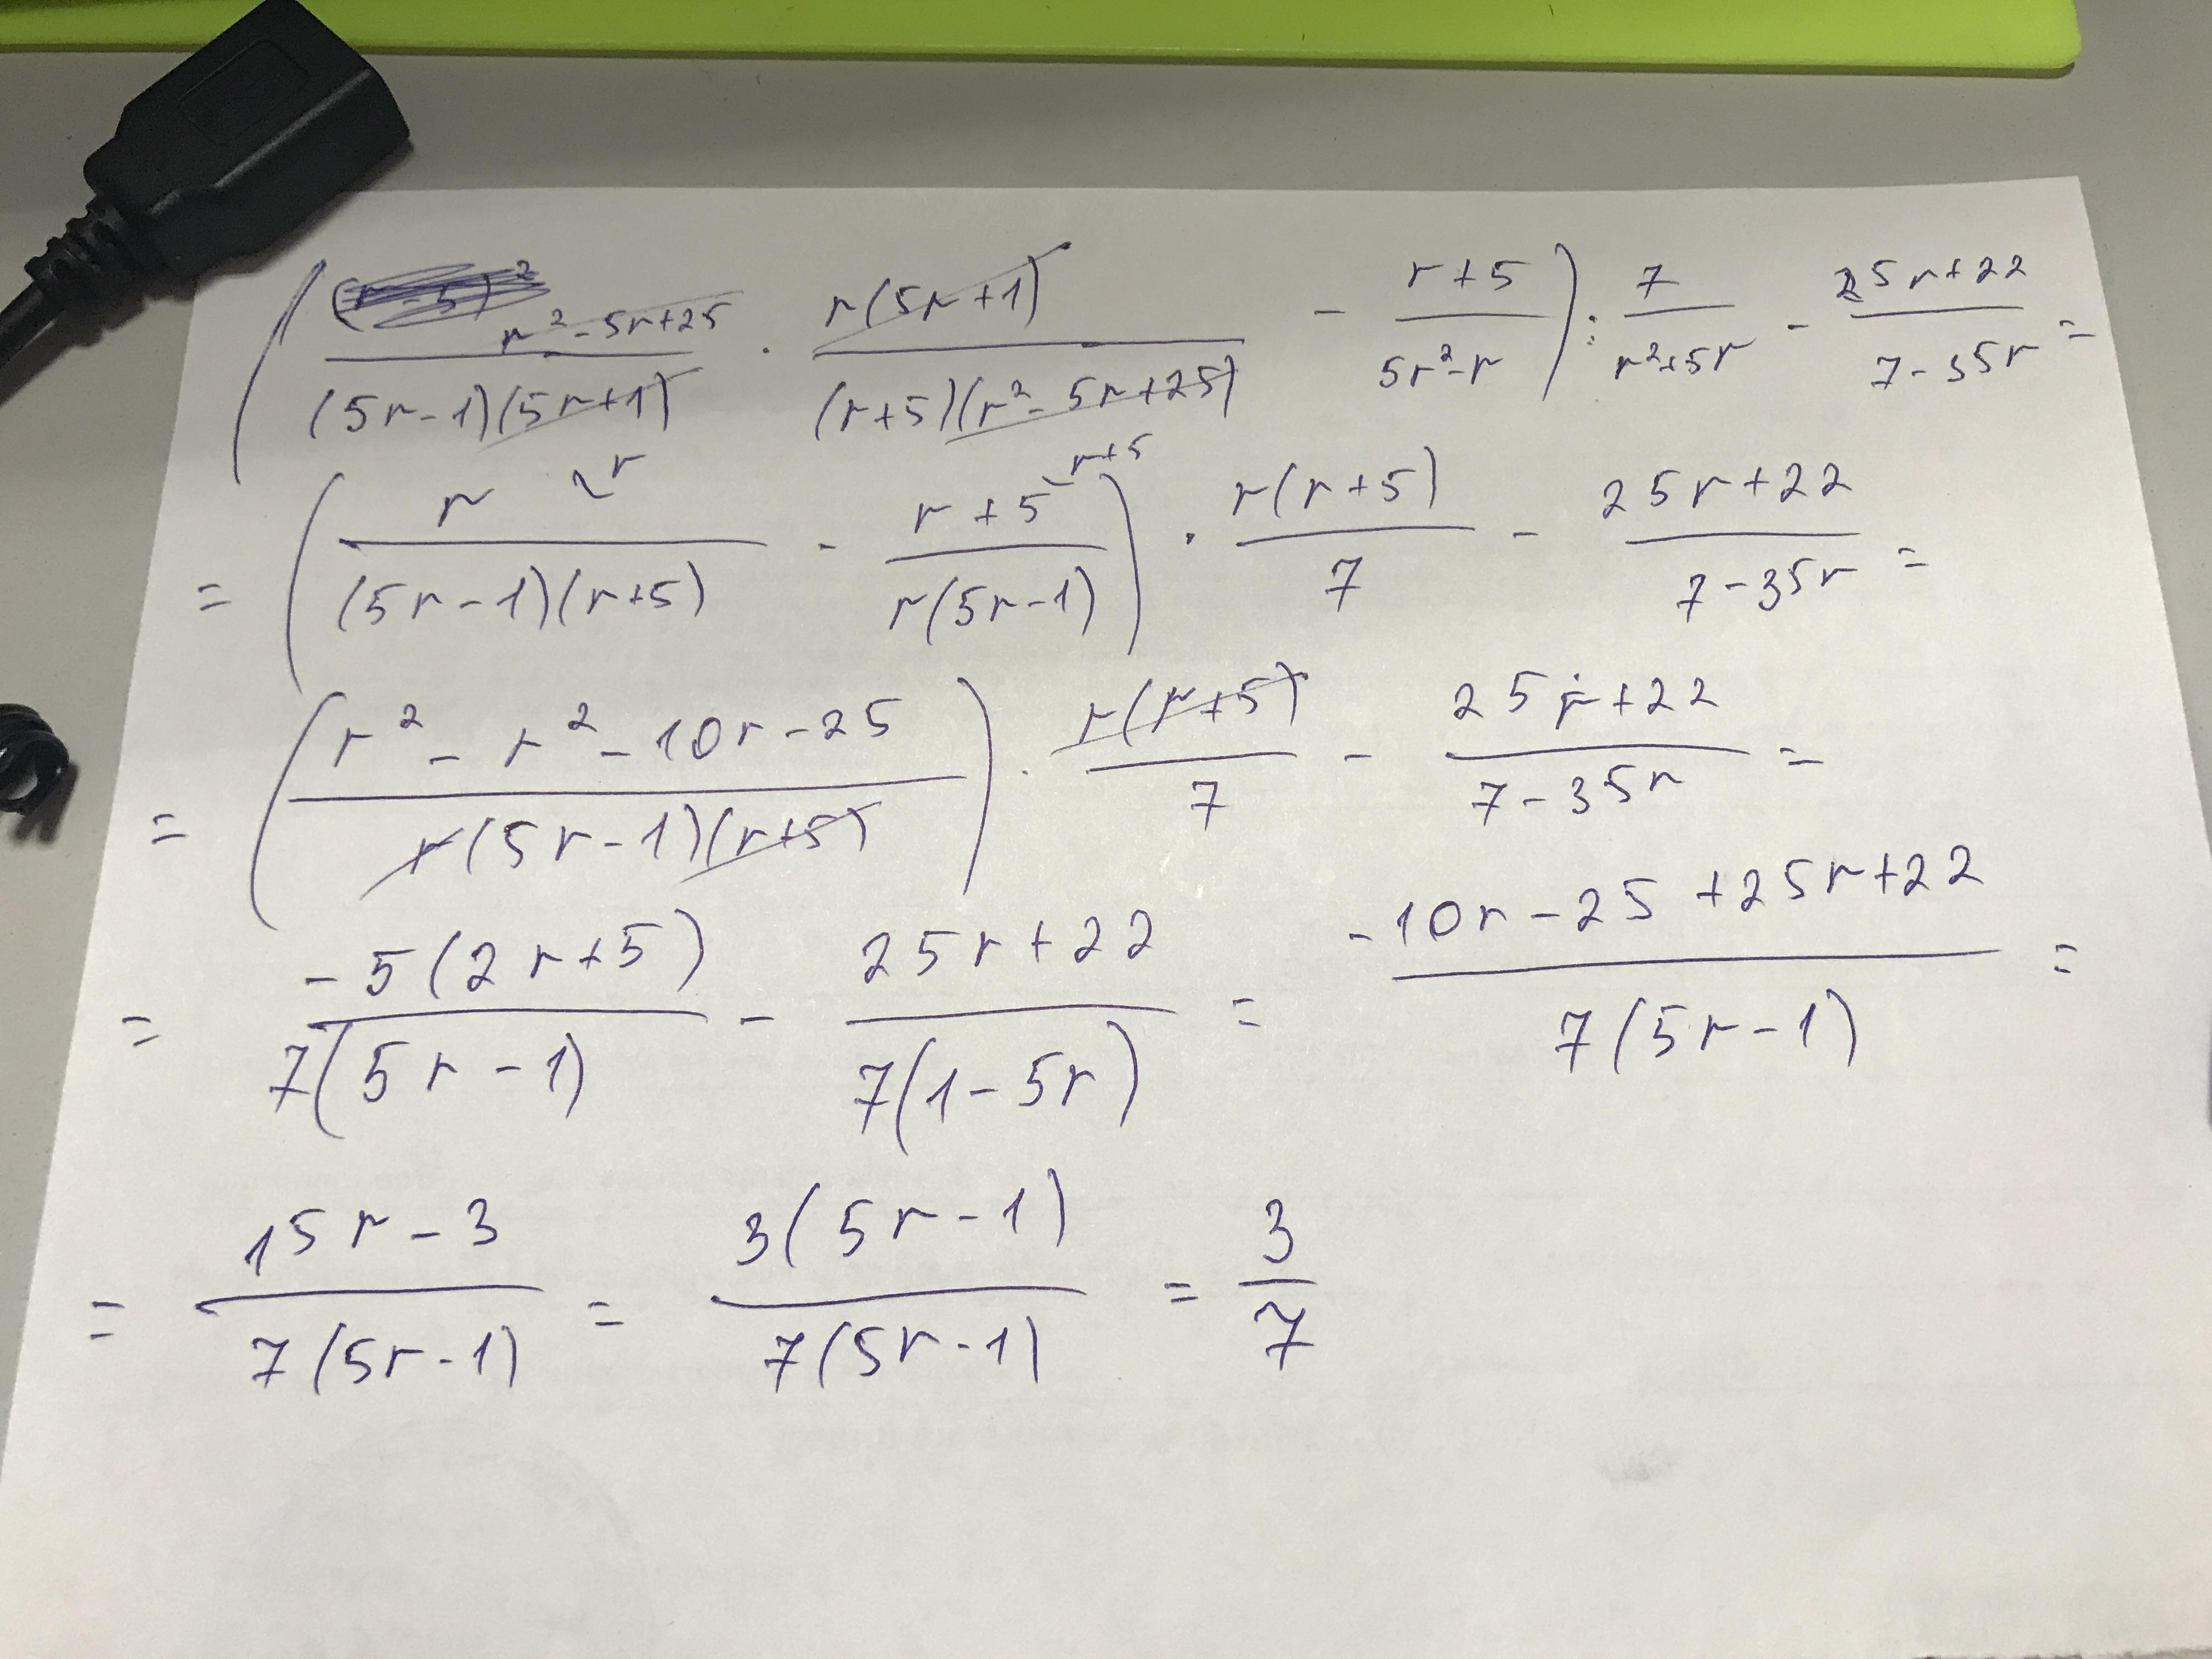 ( (r² - 5r + 25)/((5r - 1)(5r + 1)) · (r(5r + 1))/((r + 5)(r² - 5r + 25)) - (r + 5)/(5r² - r) ) : 7/(r² + 5r) - (25r + 22)/(7 - 35r) =
= ( r/((5r - 1)(r + 5)) - (r + 5)/(r(5r - 1)) ) · (r(r + 5))/7 - (25r + 22)/(7 - 35r) =
= ( (r² - r² - 10r - 25)/(r(5r - 1)(r + 5)) ) · (r(r + 5))/7 - (25r + 22)/(7 - 35r) =
= (-5(2r + 5))/(7(5r - 1)) - (25r + 22)/(7(1 - 5r)) = (-10r - 25 + 25r + 22)/(7(5r - 1)) =
= (15r - 3)/(7(5r - 1)) = (3(5r - 1))/(7(5r - 1)) = 3/7